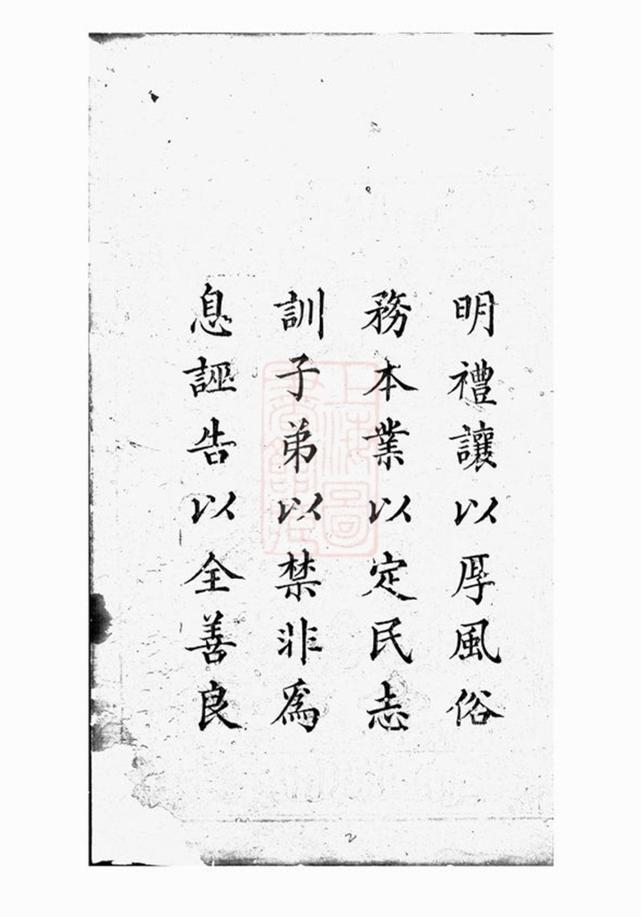 明禮讓以厚風俗
務本業以定民志
訓子弟以禁非爲
息誣告以全善良
2